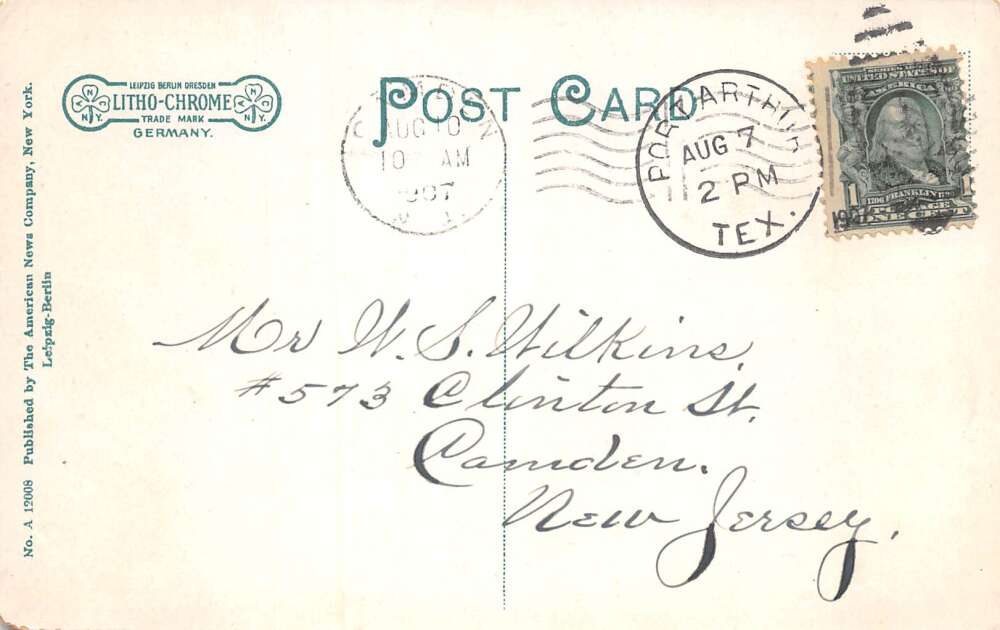 LEIPZIG BERLIN DRESDEN
LITHO-CHROME
TRADE MARK
GERMANY.
N Y.
N Y.
POST CARD
AUG 10
10 AM
1907
PORT ARTHUR
AUG 7
2 PM
TEX.
1907
UNITED STATES OF
AMERICA
1
FRANKLIN
1
ONE CENT
Mr W. S. Wilkins,
#573 Clinton St.
Camden.
New Jersey,
No. A 12008 Published by The American News Company, New York.
Leipzig-Berlin